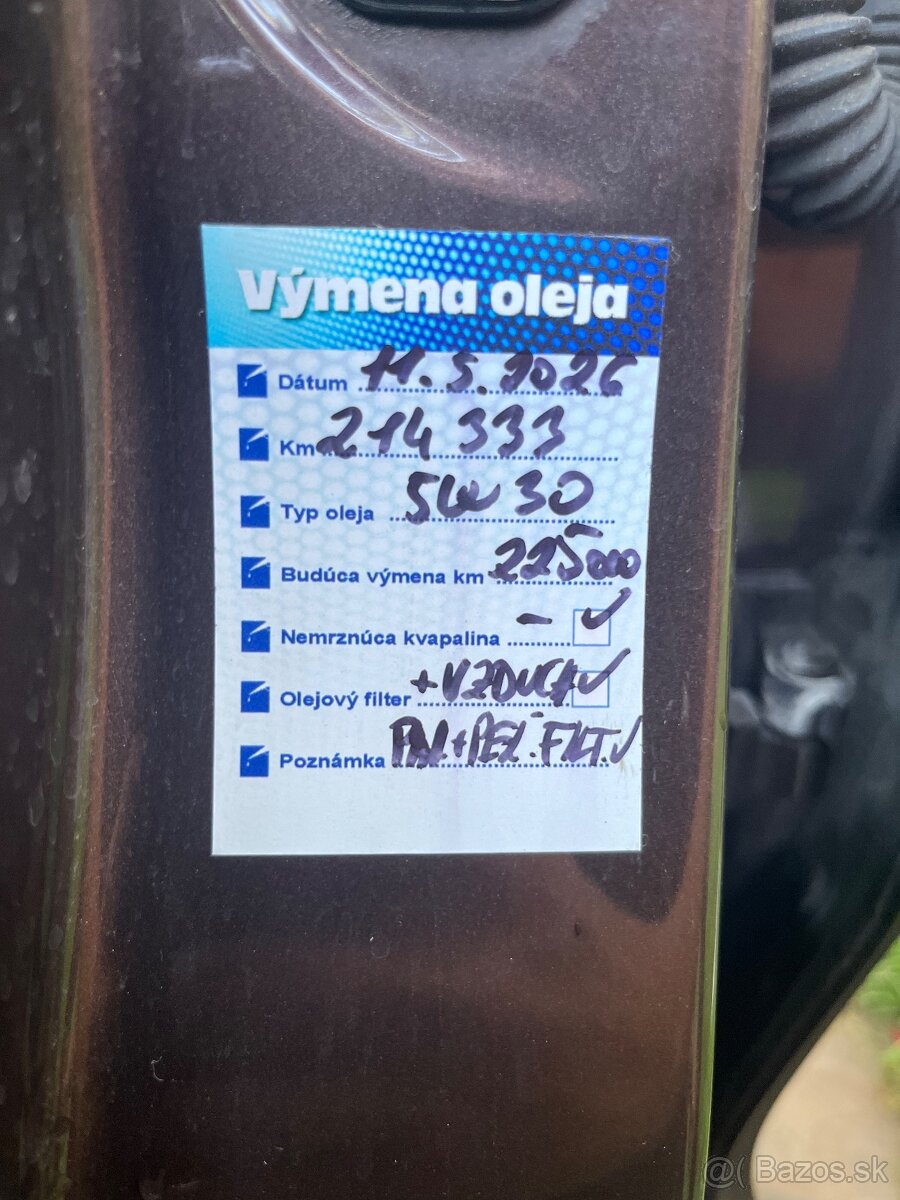 Výmena oleja
Dátum 11.5.2026
Km 214 333
Typ oleja 5W30
Budúca výmena km 225000
Nemrznúca kvapalina - ✓
Olejový filter + VZDUCH ✓
Poznámka + PEL. FILT. ✓
@( Bazos.sk